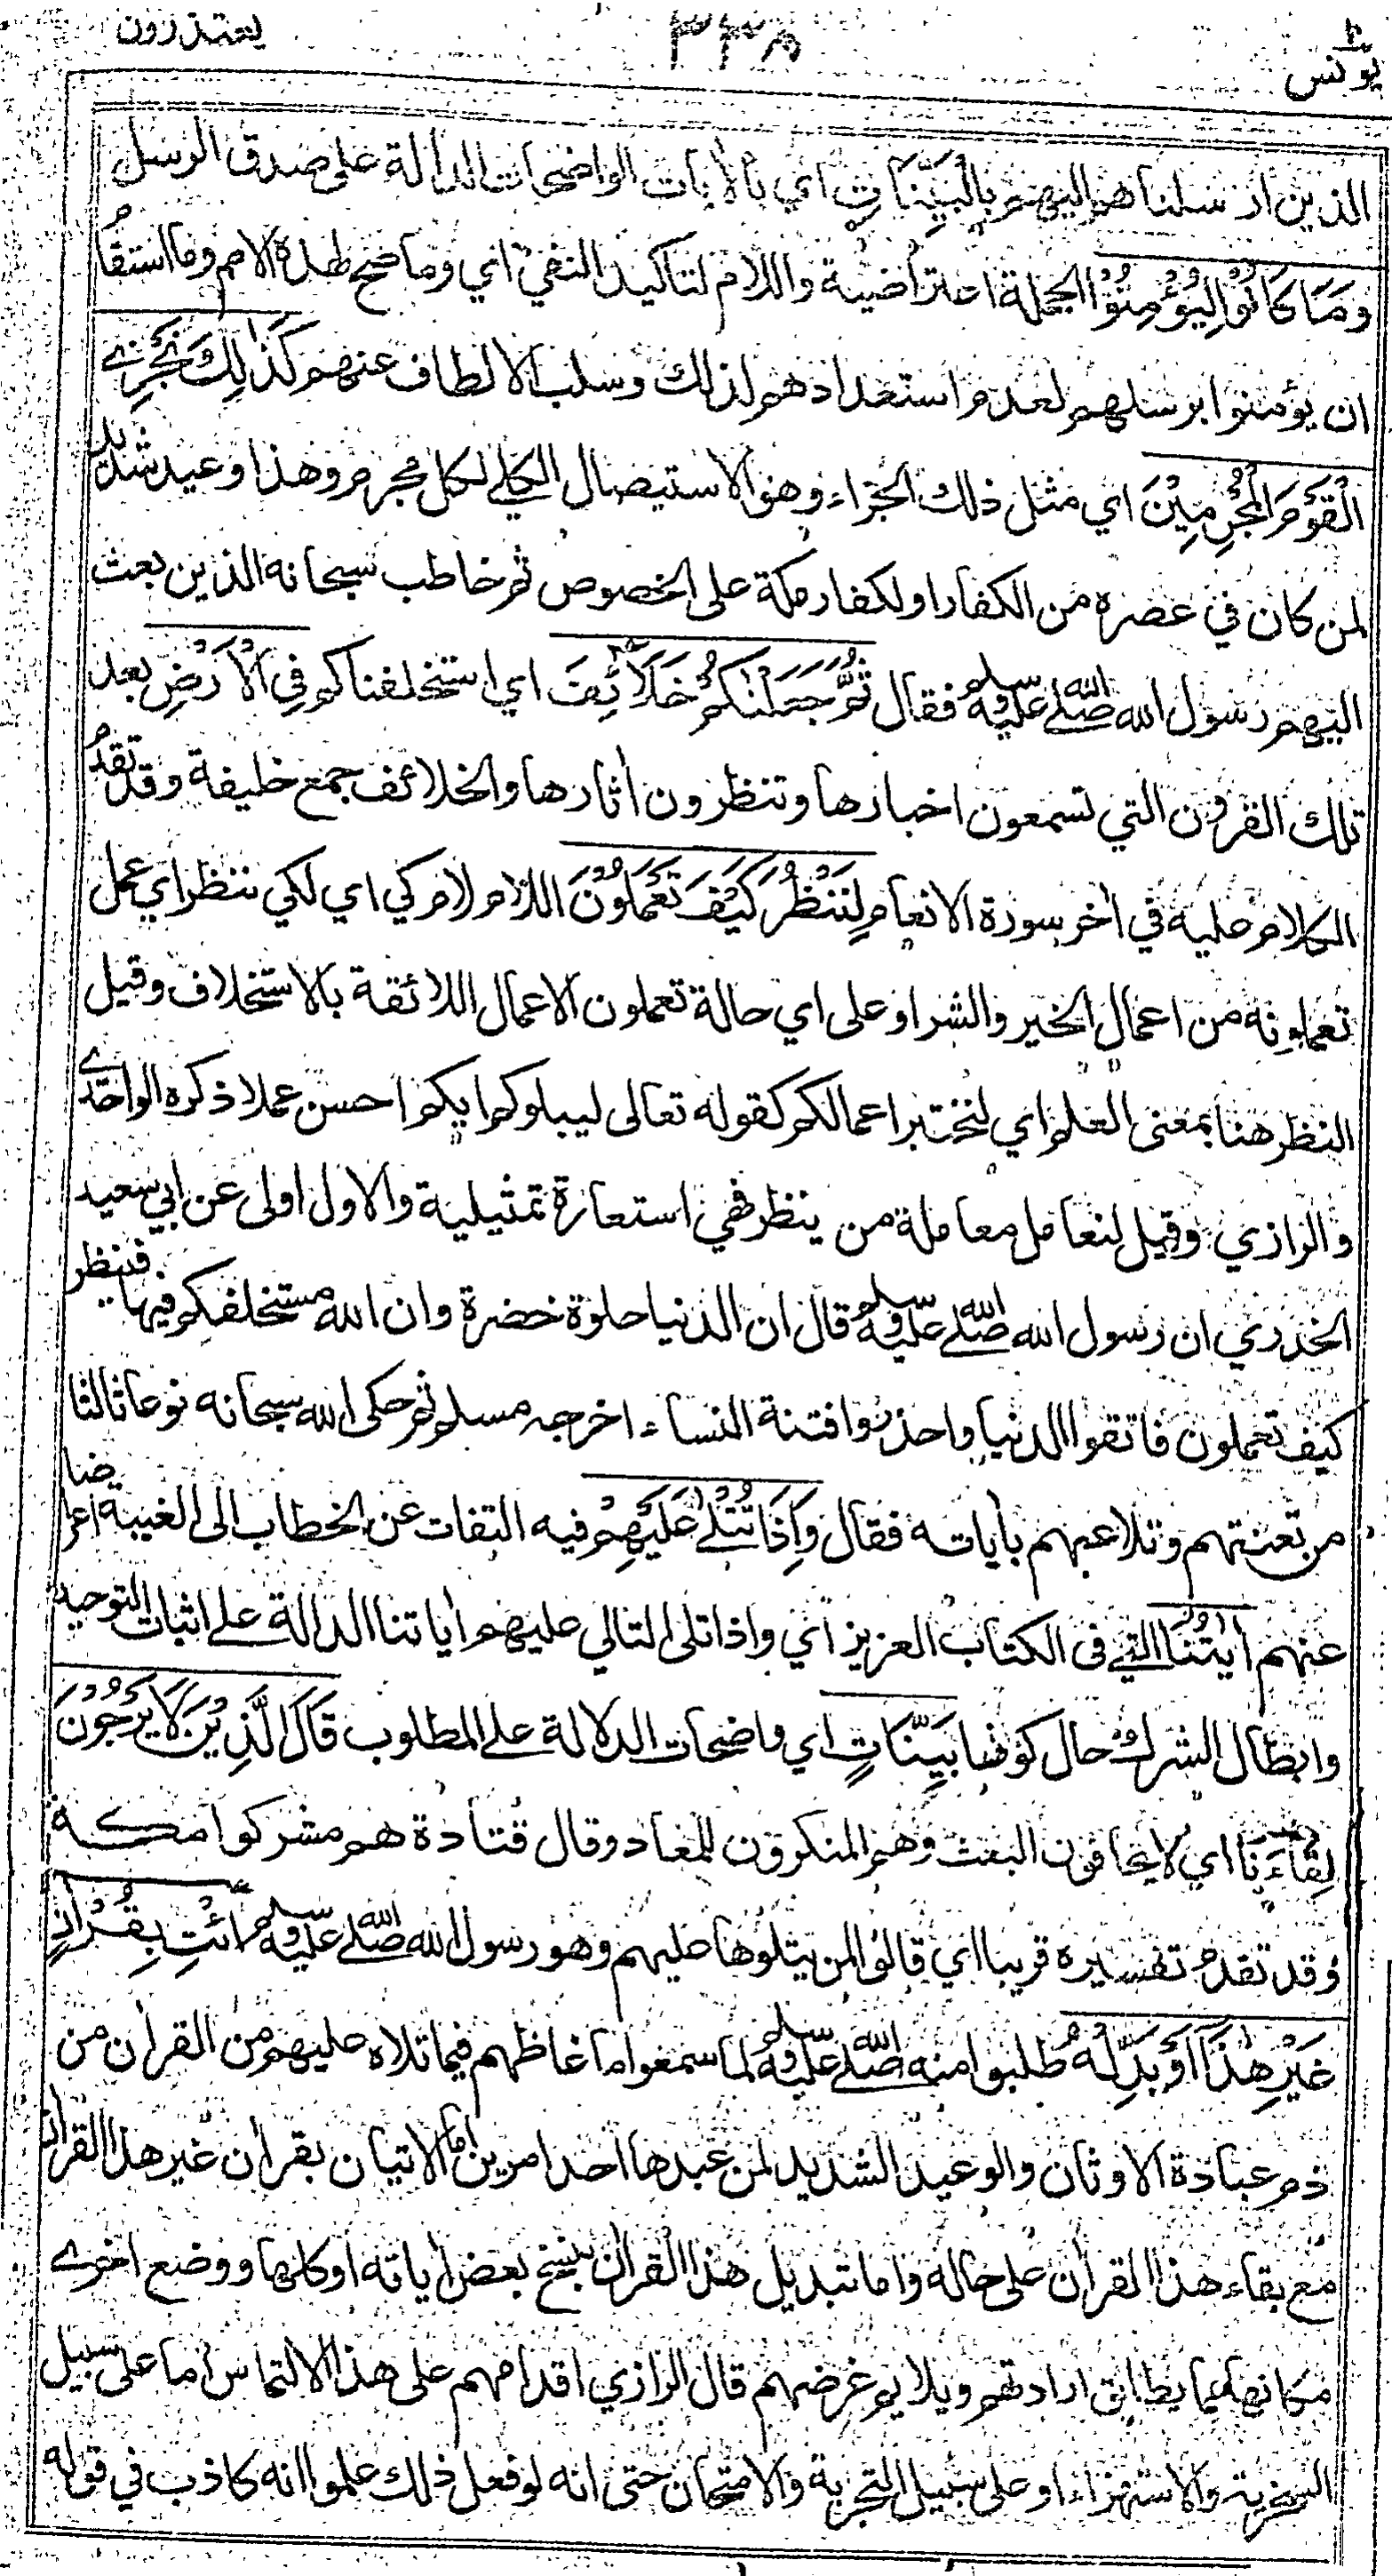 يونس ٣٣٨ يعتذرون
الذين ارسلناهم اليهم بِالْبَيِّنَاتِ اي بالأيات الواضحات الدالة على صدق الرسل
وَمَا كَانُوْا لِيُؤْمِنُوْا الجملة اعتراضية واللام لتاكيد النفي اي وما صح لهذه الامم وما استقام
ان يؤمنوا برسلهم لعدم استعدادهم لذلك وسلب الالطاف عنهم كَذٰلِكَ نَجْزِي
الْقَوْمَ الْمُجْرِمِيْنَ اي مثل ذلك الجزاء وهو الاستيصال الكلي لكل مجرم وهذا وعيد شديد
لمن كان في عصره من الكفار او لكفار مكة على الخصوص ثم خاطب سبحانه الذين بعث
اليهم رسول الله صلى الله عليه وسلم فقال ثُمَّ جَعَلْنٰكُمْ خَلَائِفَ اي استخلفناكم فِي الْأَرْضِ بعد
تلك القرون التي تسمعون اخبارها وتنظرون أثارها والخلائف جمع خليفة وقد تقدم
الكلام عليه في أخر سورة الانعام لِنَنْظُرَ كَيْفَ تَعْمَلُوْنَ اللام لام كي اي لكي ننظر اي عمل
تعملونه من اعمال الخير والشر او على اي حالة تعملون الاعمال اللائقة بالاستخلاف وقيل
النظر هنا بمعنى العلم اي لنختبر اعمالكم كقوله تعالى ليبلوكم ايكم احسن عملا ذكره الواحدي
والرازي وقيل لنعامل معاملة من ينظر فهي استعارة تمثيلية والاول اولى عن ابي سعيد
الخدري ان رسول الله صلى الله عليه وسلم قال ان الدنيا حلوة خضرة وان الله مستخلفكم فيها فننظر
كيف تعملون فاتقوا الدنيا واحذروا فتنة النساء اخرجه مسلم ثم حكى الله سبحانه نوعا ثالثا
من تعنتهم وتلاعبهم بأياته فقال وَإِذَا تُتْلٰى عَلَيْهِمْ فيه التفات عن الخطاب الى الغيبة اعراضا
عنهم أٰيٰتُنَا التي في الكتاب العزيز اي واذا تلى التالي عليهم أياتنا الدالة على اثبات التوحيد
وابطال الشرك حال كونها بَيِّنَاتٍ اي واضحات الدلالة على المطلوب قَالَ الَّذِيْنَ لَا يَرْجُوْنَ
لِقَاءَنَا اي لا يخافون البعث وهم المنكرون للمعاد وقال قتادة هم مشركوا مكة
وقد تقدم تفسيره قريبا اي قالوا لمن يتلوها عليهم وهو رسول الله صلى الله عليه وسلم ائْتِ بِقُرْأٰنٍ
غَيْرِ هٰذَا أَوْ بَدِّلْهُ طلبوا منه صلى الله عليه وسلم لما سمعوا ما غاظهم فيما تلاه عليهم من القرأن من
ذم عبادة الاوثان والوعيد الشديد لمن عبدها احد امرين اما الاتيان بقرأن غير هذا القرأن
مع بقاء هذا القرأن على حاله واما تبديل هذا القرأن بنسخ بعض أياته او كلها ووضع اخرى
مكانها مما يطابق ارادتهم ويلايم غرضهم قال الرازي اقدامهم على هذا الالتماس اما على سبيل
السخرية والاستهزاء او على سبيل التجربة والامتحان حتى انه لو فعل ذلك علموا انه كاذب في قوله